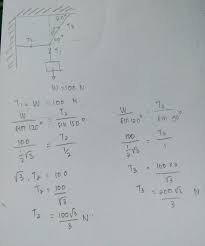 60°
T3
T2
T1
W=100 N
T1 = W = 100 N
W / sin 120° = T2 / sin 150°
100 / ½√3 = T2 / ½
√3 · T2 = 100
T2 = 100 / √3
T2 = 100√3 / 3 N
W / sin 120° = T3 / sin 90°
100 / ½√3 = T3 / 1
T3 = 100 x 2 / √3
T3 = 200√3 / 3 N